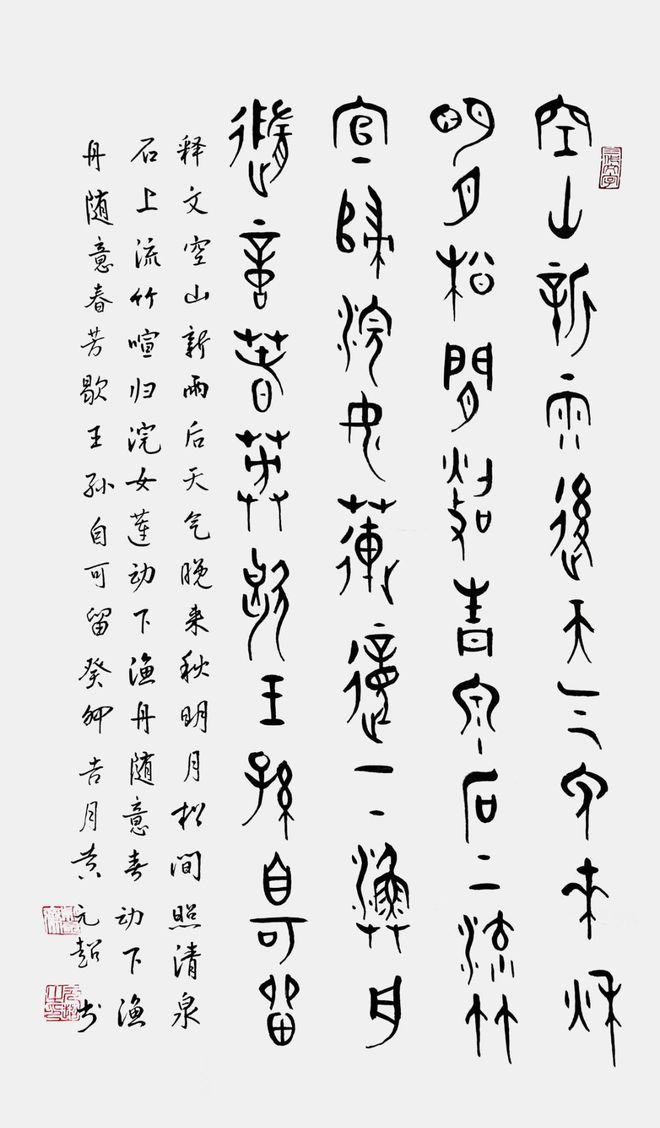 空山新雨後天气晚来秋
明月松間照青泉石上流竹
宣歸浣女蓮動下漁舟
隨意春芳歇王孫自可留
释文空山新雨后天气晚来秋明月松间照清泉
石上流竹喧归浣女蓮动下渔舟随意春动下渔
舟随意春芳歇王孙自可留癸卯吉月黄元超书